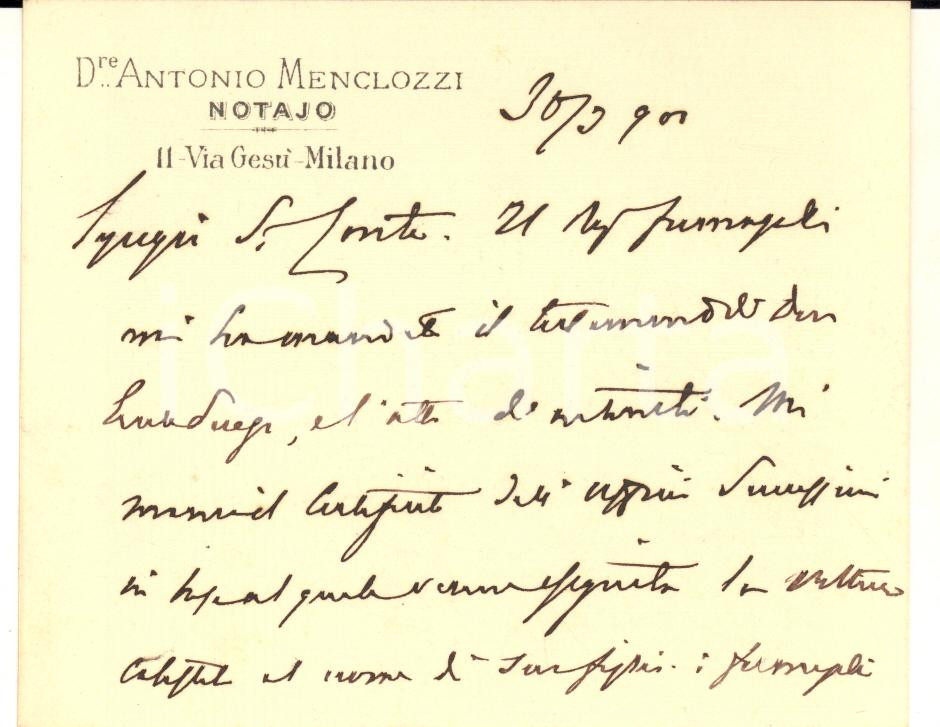 Dre ANTONIO MENCLOZZI
NOTAJO
11-Via Gesù-Milano
30/3 900
Egregio S. Conte. Il Rag Fumagalli
mi ha mandato il testamento di don
e l'atto di notorietà. Mi
manca il Certificato dell'ufficio Successioni
in base al quale venne eseguita la voltura
Catastale al nome di suo figlio. i Fumagalli
iCharta